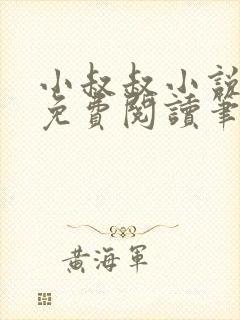 小叔叔小說
免費閱讀筆
黃海軍